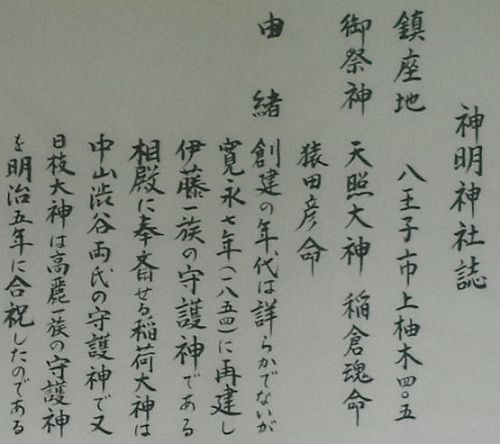 神明神社誌
鎮座地 八王子市上柚木四〇五
御祭神 天照大神 稲倉魂命
猿田彦命
由緒 創建の年代は詳らかでないが
寛永七年(一八五四)に再建し
伊藤一族の守護神である
相殿に奉斎せる稲荷大神は
中山渋谷両氏の守護神で又
日枝大神は高麗一族の守護神
を明治五年に合祝したのである